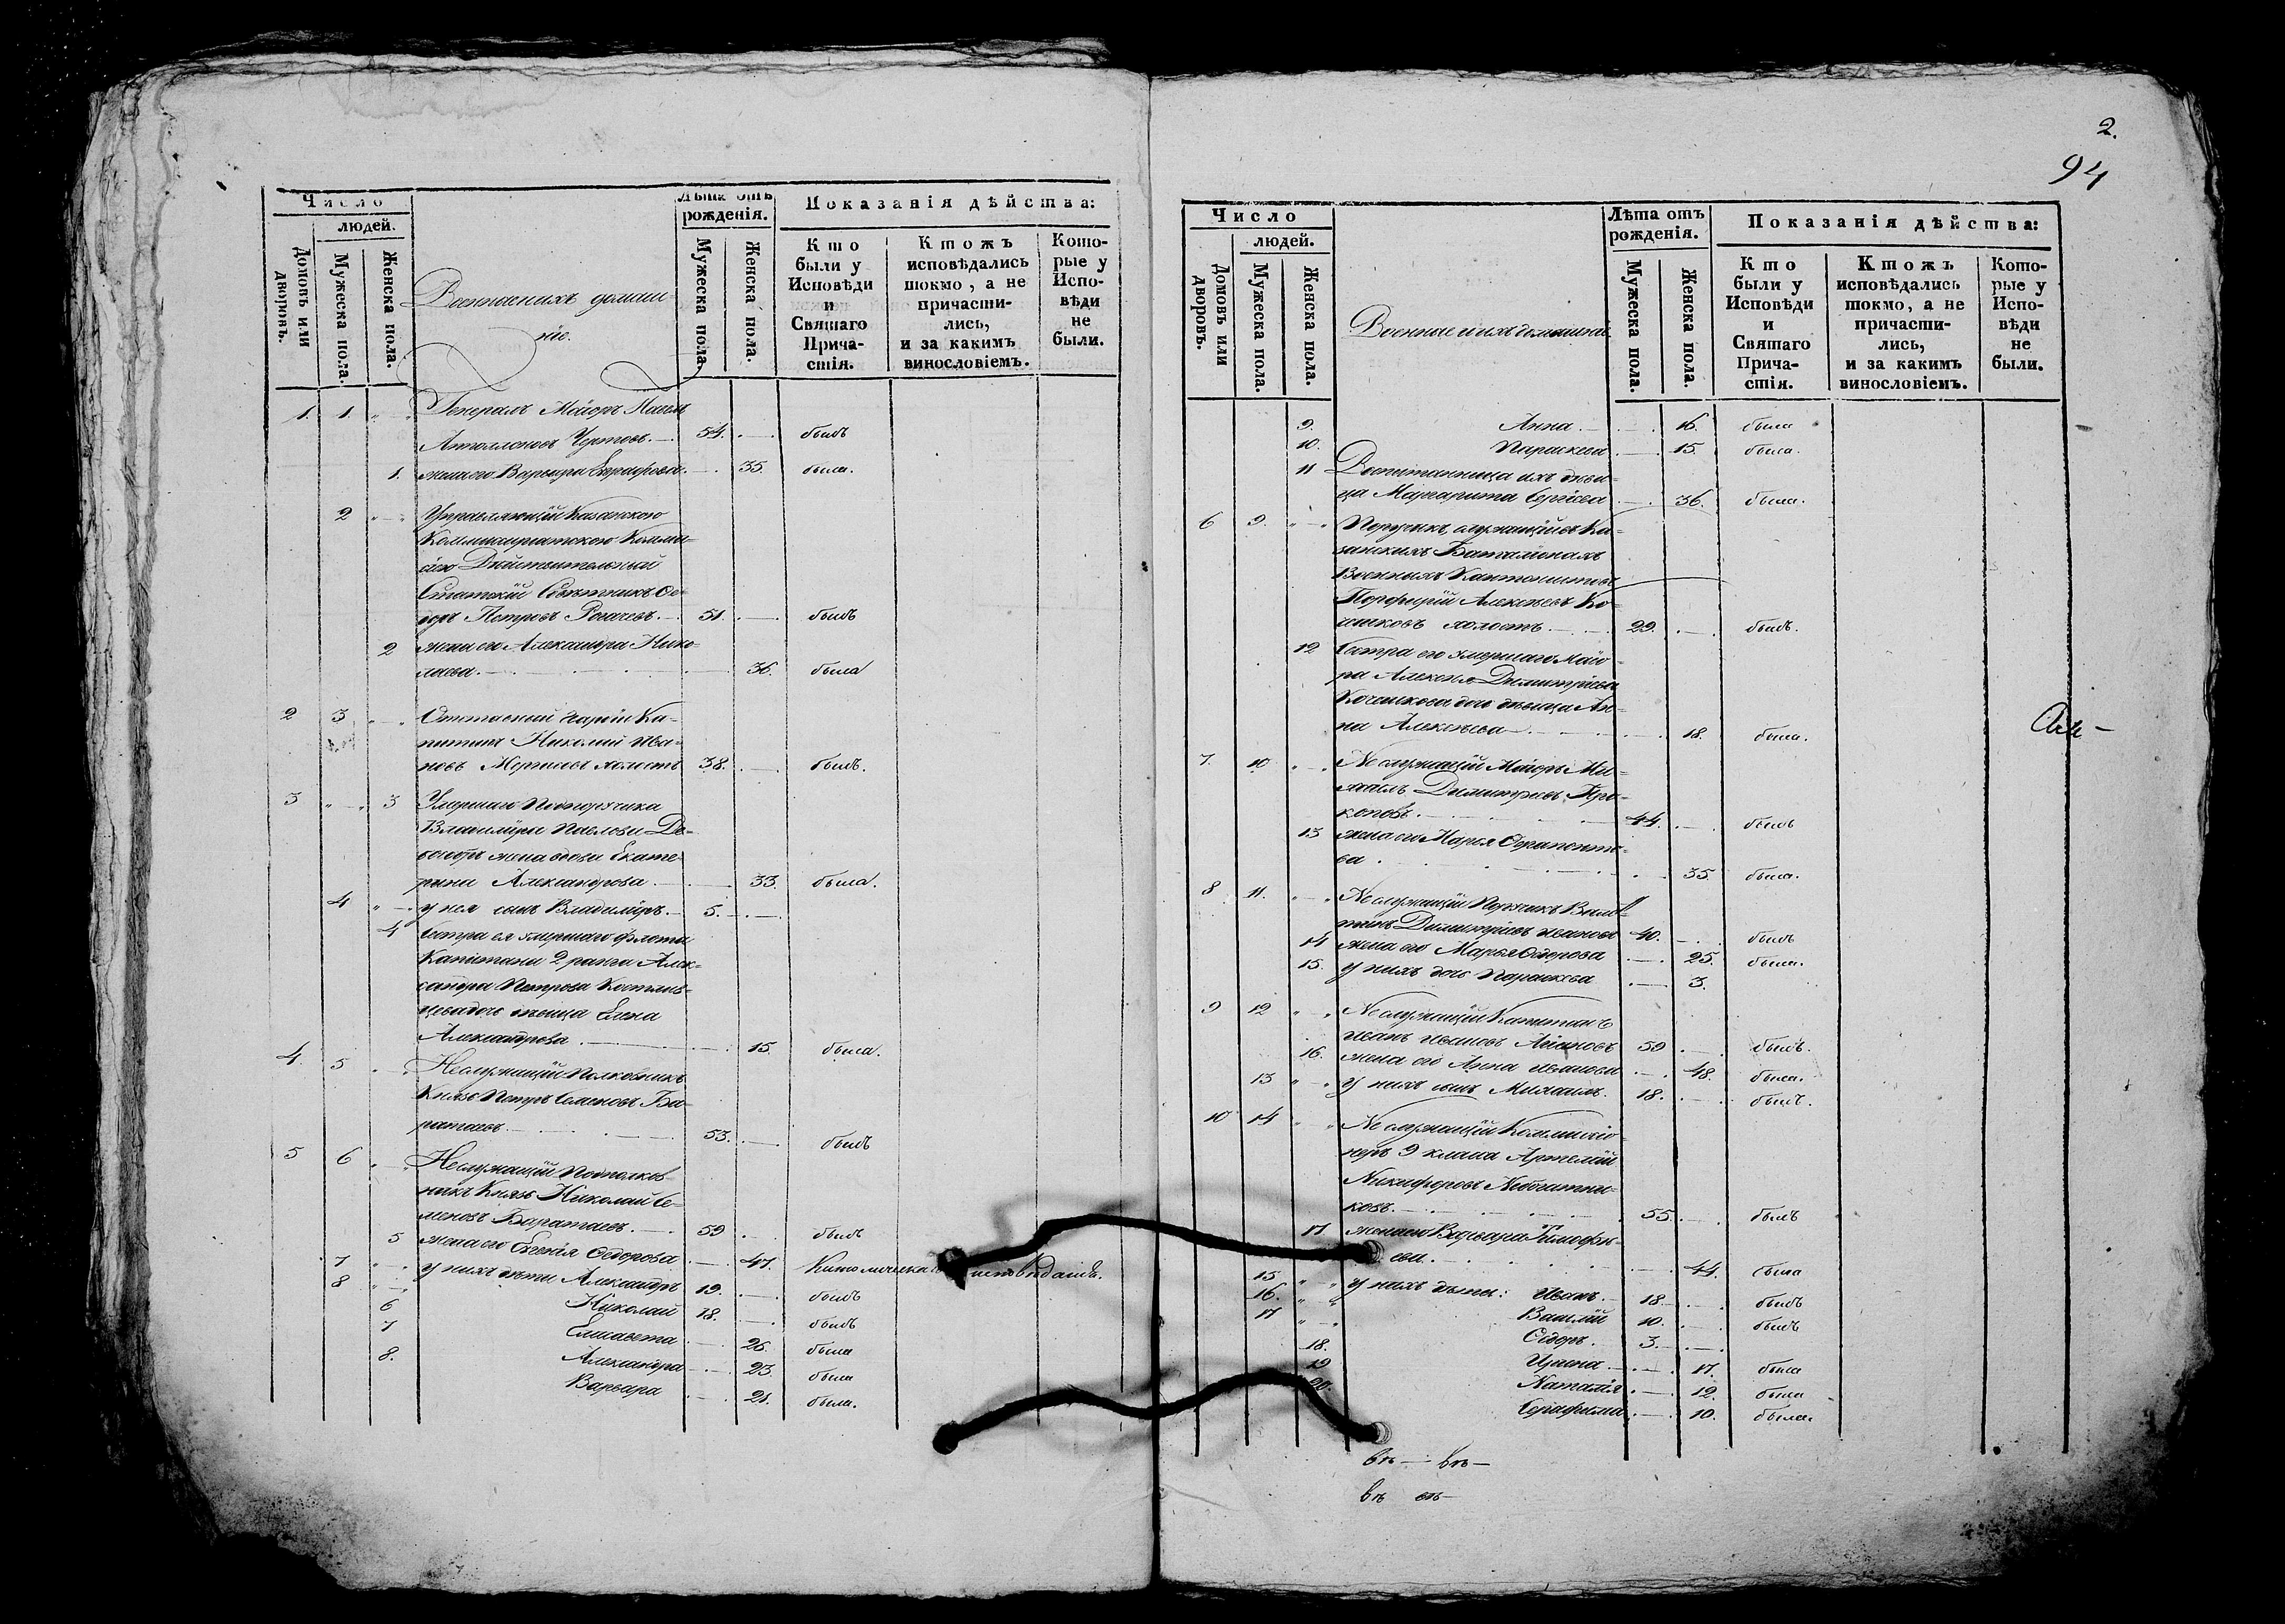 Число
людей.
Домовъ или дворовъ.
Мужеска пола.
Женска пола.
Военные и ихъ домашніе.
Лѣта отъ рожденія.
Мужеска пола.
Женска пола.
Показанія дѣйства:
Кто были у Исповѣди и Святаго Причастія.
Ктожъ исповѣдались токмо, а не причастились, и за какимъ винословіемъ.
Которые у Исповѣди не были.
1. 1. Генералъ Маіоръ Павелъ
Аполлоновъ Чертовъ. 54. былъ
1. жена его Варвара Евграфова. 35. была.
2 Управляющій Казанскою
Коммисаріатскою Комми-
сіею Дѣйствительный
Статскій Совѣтникъ Ѳе-
доръ Петровъ Рогачевъ. 51. былъ
2 жена его Александра Нико-
лаева. 36. была
2 3 Отставной Гвардіи Ка-
питанъ Николай Ива-
новъ холостъ 38. былъ.
3 3 Умершаго Подпоручика
Владиміра Павлова
жена вдова Екате-
рина Александрова 33. была.
4 у нея сынъ Владиміръ. 5.
4 Сестра ея умершаго флота
Капитана 2 ранга Алек-
сандра Петрова
дочь дѣвица Елена
Александрова 15. была.
4. 5 Неслужащій Полковникъ
Князь Петръ Семеновъ Ба-
ратаевъ. 53. былъ
5 6 Неслужащій Подполков-
никъ Князь Николай Се-
меновъ Баратаевъ. 59 былъ
5 жена его Евгенія Ѳедорова 47. Католическаго исповѣданія.
7 у нихъ дѣти Александръ 19. былъ
8 Николай 18. былъ
6 Елисавета 26. была
7 Александра 23. была
8. Варвара 21. была.
2.
94
Число
людей.
Домовъ или дворовъ.
Мужеска пола.
Женска пола.
Военные и ихъ домашніе
Лѣта отъ рожденія.
Мужеска пола.
Женска пола.
Показанія дѣйства:
Кто были у Исповѣди и Святаго Причастія.
Ктожъ исповѣдались токмо, а не причастились, и за какимъ винословіемъ.
Которые у Исповѣди не были.
9. Анна 16. была
10. Параскева 15. была.
11 Воспитанница ихъ дѣви-
ца Маргарита Сергіева 36. была.
6 9. Поручикъ служащій въ Ка-
занскихъ Баталіонахъ
Военныхъ Кантонистовъ
Порфирій Алексѣевъ Ко-
холостъ 29. былъ.
12 Сестра его умершаго Маіо-
ра Алексѣя Димитріева
дочь дѣвица Ан-
на Алексѣева 18. была.
7. 10 Неслужащій Маіоръ Ми-
хаилъ Димитріевъ Про-
коповъ. 44. былъ
13 жена его Марія
ва 35. была.
8 11. Неслужащій Поручикъ
Димитріевъ Ивановъ 40. былъ
14 жена его Марья Ѳедорова 25. была.
15. у нихъ дочь Параскева 3.
9 12 Неслужащій Капитанъ
Иванъ Ивановъ 59 былъ.
16. жена его Анна Иванова 48. была.
13 у нихъ сынъ Михаилъ. 18. былъ.
10 14 Неслужащій Коммисіо-
неръ 9 класса Артемій
Никифоровъ
ковъ. 55. былъ
17 жена его Варвара Тимофѣ-
ева. 44. была
15 у нихъ дѣти: Иванъ. 18. былъ
16. Василій 10. былъ
17 Ѳедоръ. 3.
18. Ирина 17. была
19 Наталія 12. была
20. Серафима 10. была.